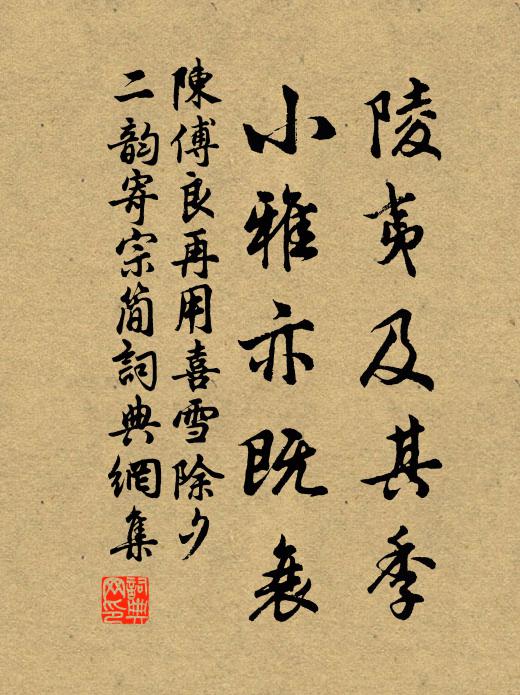 陵夷及其季
小雅亦既衰
陳傅良再用喜雪除夕
二韵寄宗簡詞典網集
詞典網印